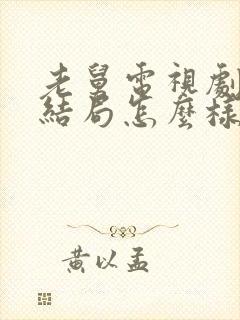 老舅電視劇
結局怎麼樣
黃以孟